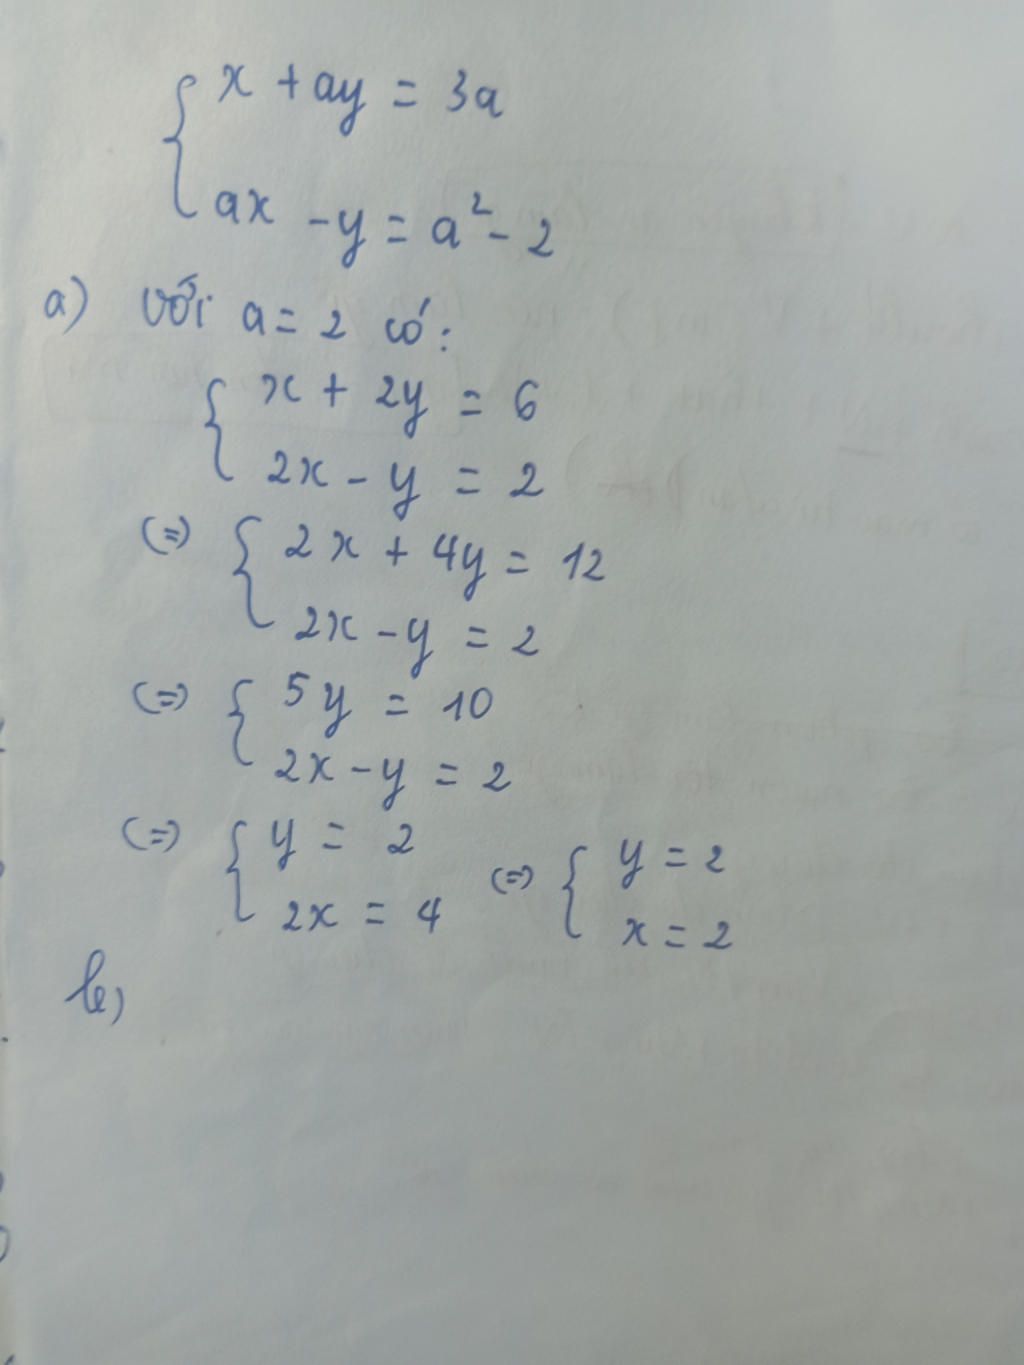 x + ay = 3a
ax - y = a² - 2
a) Với a = 2 có:
x + 2y = 6
2x - y = 2
(=) 2x + 4y = 12
2x - y = 2
(=) 5y = 10
2x - y = 2
(=) y = 2 (=) y = 2
2x = 4 x = 2
b,